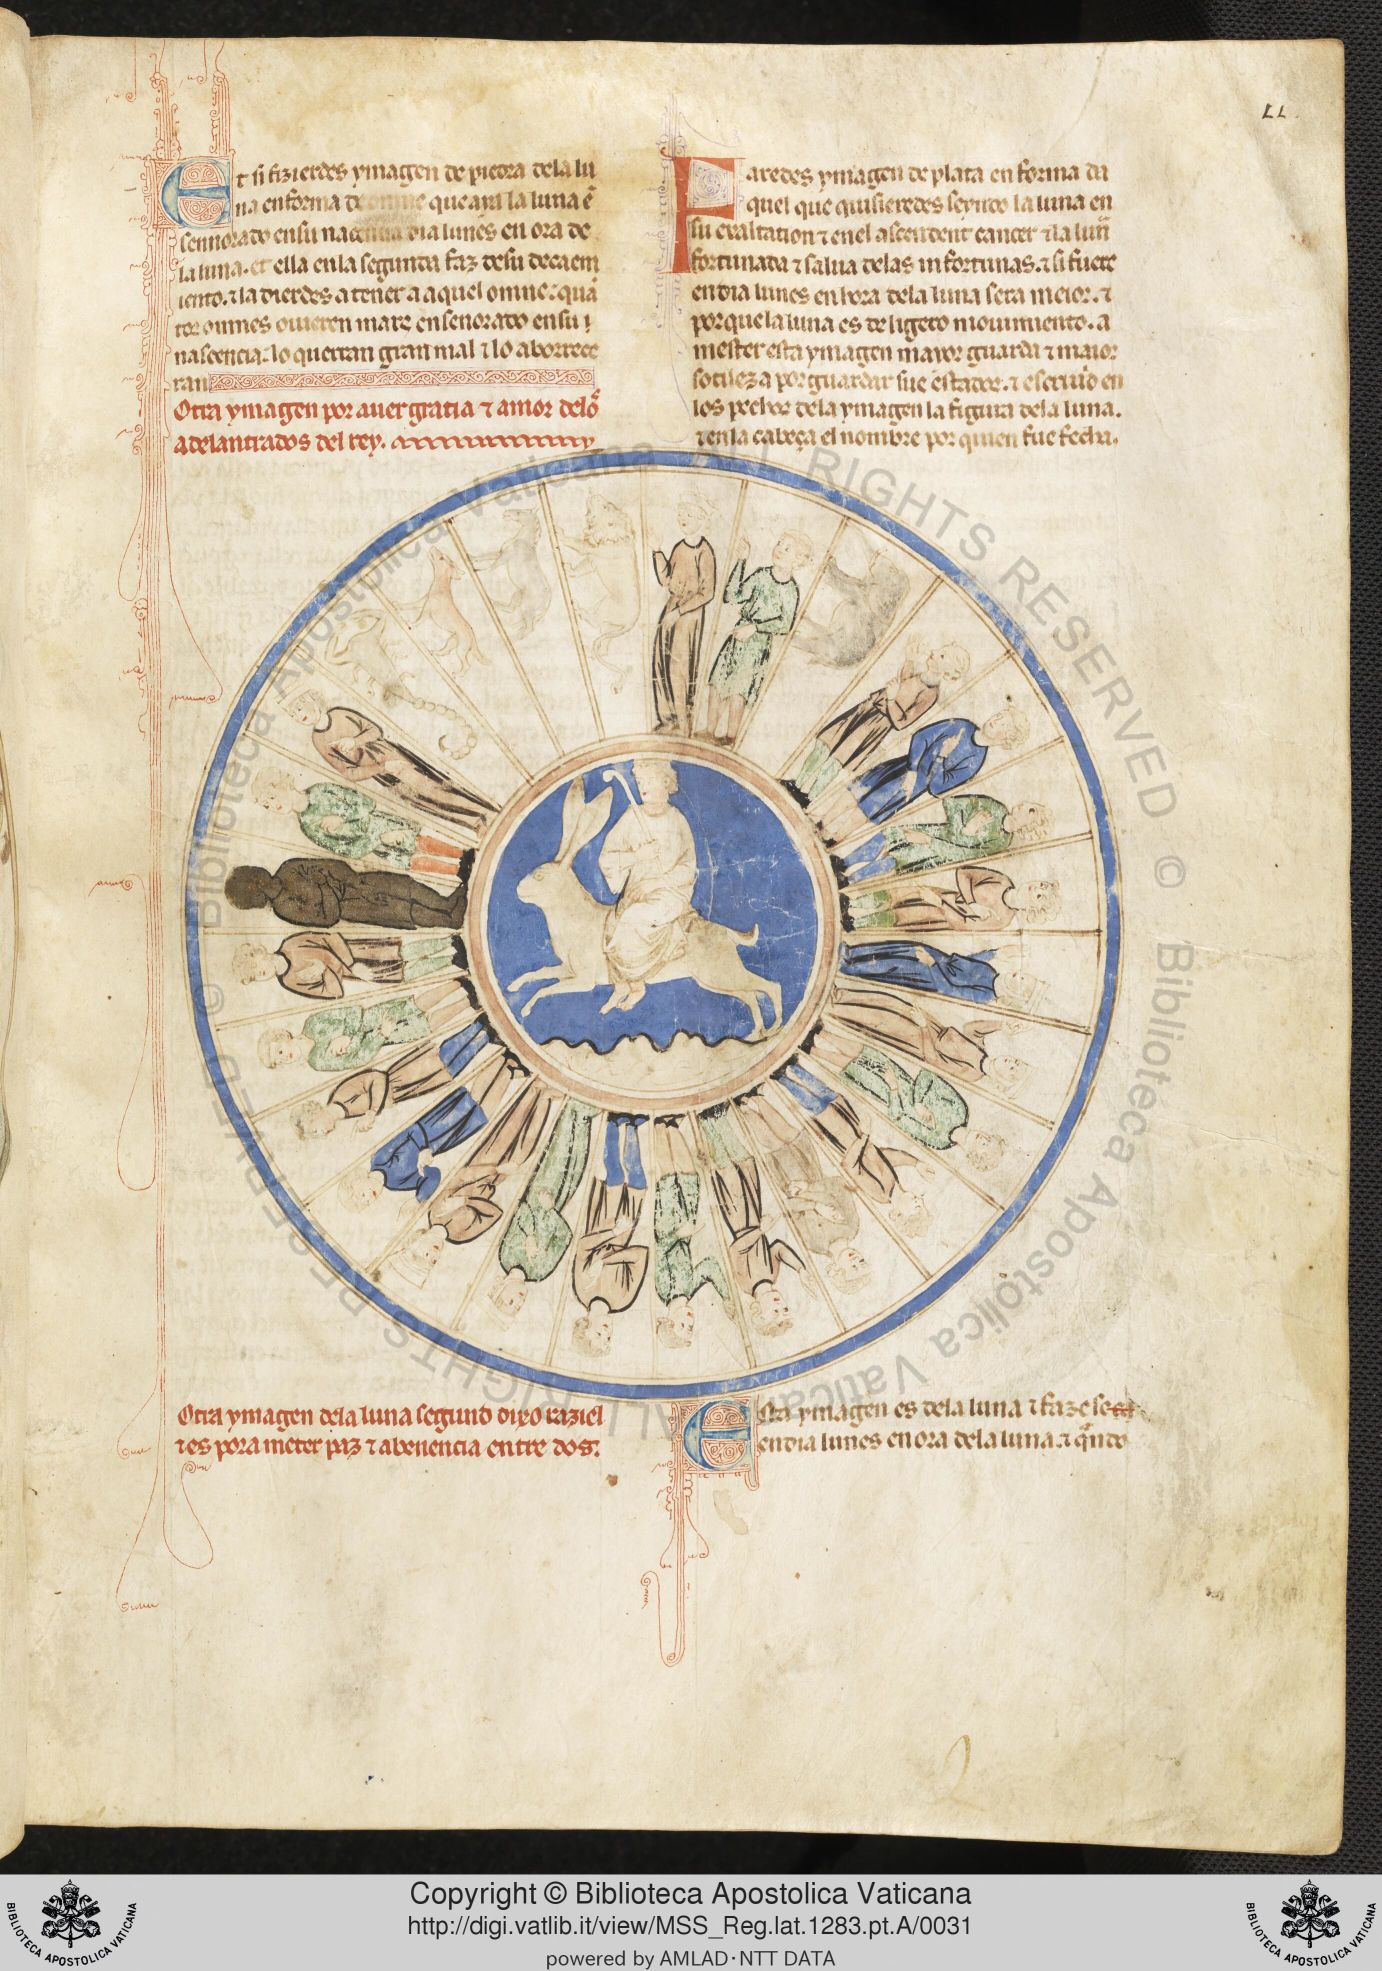 Et si fizierdes ymagen de piedra dela lu
na en forma de omne que aya la luna ẽ
sennorado en su nacencia dia lunes en ora de
la luna. et ella en la segunda faz de su decaem
iento. ⁊ la dierdes a tener a aquel omne: quã
tos omnes ouieren marz ensenorado en su
nascencia: lo querran gran mal ⁊ lo aborrece
ran
Otra ymagen por auer gratia ⁊ amor delõ
adelantrados del rey.
Faredes ymagen de plata en forma da
quel que quisieredes seyndo la luna en
su exaltation ⁊ en el ascendent cancer ⁊ la lun
fortunada ⁊ salua delas infortunas. ⁊ si fuere
en dia lunes en hora dela luna sera meior. ⁊
por que la luna es de ligero mouimiento. a
mester esta ymagen mayor guarda ⁊ maior
sotileza por guardar sue estador. ⁊ escriuid en
los pechos dela ymagen la figura dela luna.
⁊ en la cabeça el nombre por quien fue fecha.
Otra ymagen dela luna segund dixo raziel
⁊ es pora meter paz ⁊ abenencia entre dos:
Esta ymagen es dela luna ⁊ faze se
en dia lunes en ora dela luna. ⁊ quãdo
BIBLIOTECA APOSTOLICA VATICANA
Copyright © Biblioteca Apostolica Vaticana
http://digi.vatlib.it/view/MSS_Reg.lat.1283.pt.A/0031
powered by AMLAD·NTT DATA
BIBLIOTECA APOSTOLICA VATICANA
© Biblioteca Apostolica Vaticana ALL RIGHTS RESERVED © Biblioteca Apostolica Vaticana ALL RIGHTS RESERVED